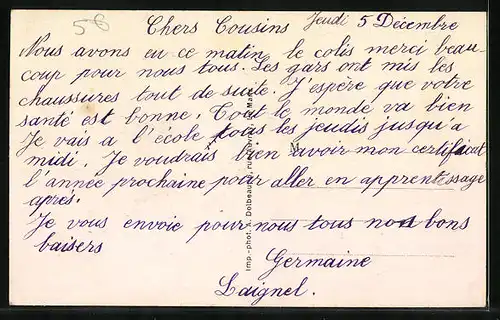 56
Jeudi 5 Décembre
Chers Cousins
Nous avons eu ce matin le colis merci beau-
coup pour nous tous. Les gars ont mis les
chaussures tout de suite. J'espère que votre
santé est bonne. Tout le monde va bien
Je vais a l'école tous les jeudis jusqu'a
midi. Je voudrais bien avoir mon certificat
l'année prochaine pour aller en apprentissage
après.
Je vous envoie pour nous tous nos bons
baisers
Germaine
Laignel.
Imp.-phot. A. Dolbeau,